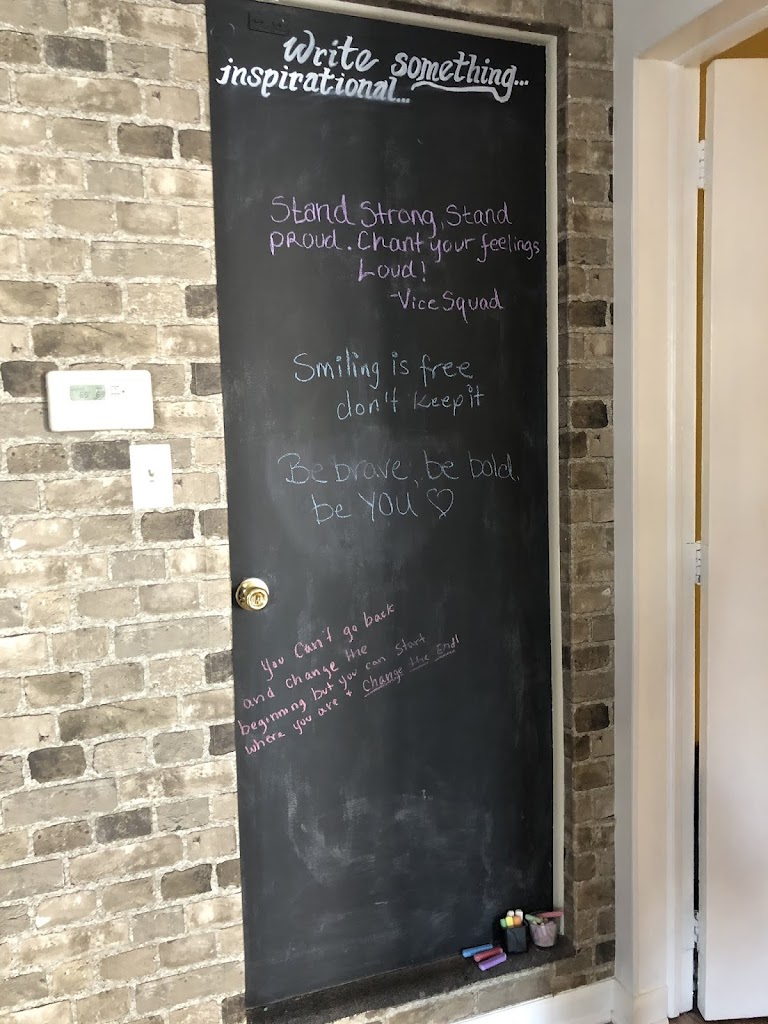 Write something...
inspirational...
Stand Strong, Stand
proud. Chant your feelings
Loud!
-Vice Squad
Smiling is free
don't keep it
Be brave, be bold,
be YOU ♡
you can't go back
and change the
beginning but you can start
where you are + change the End!